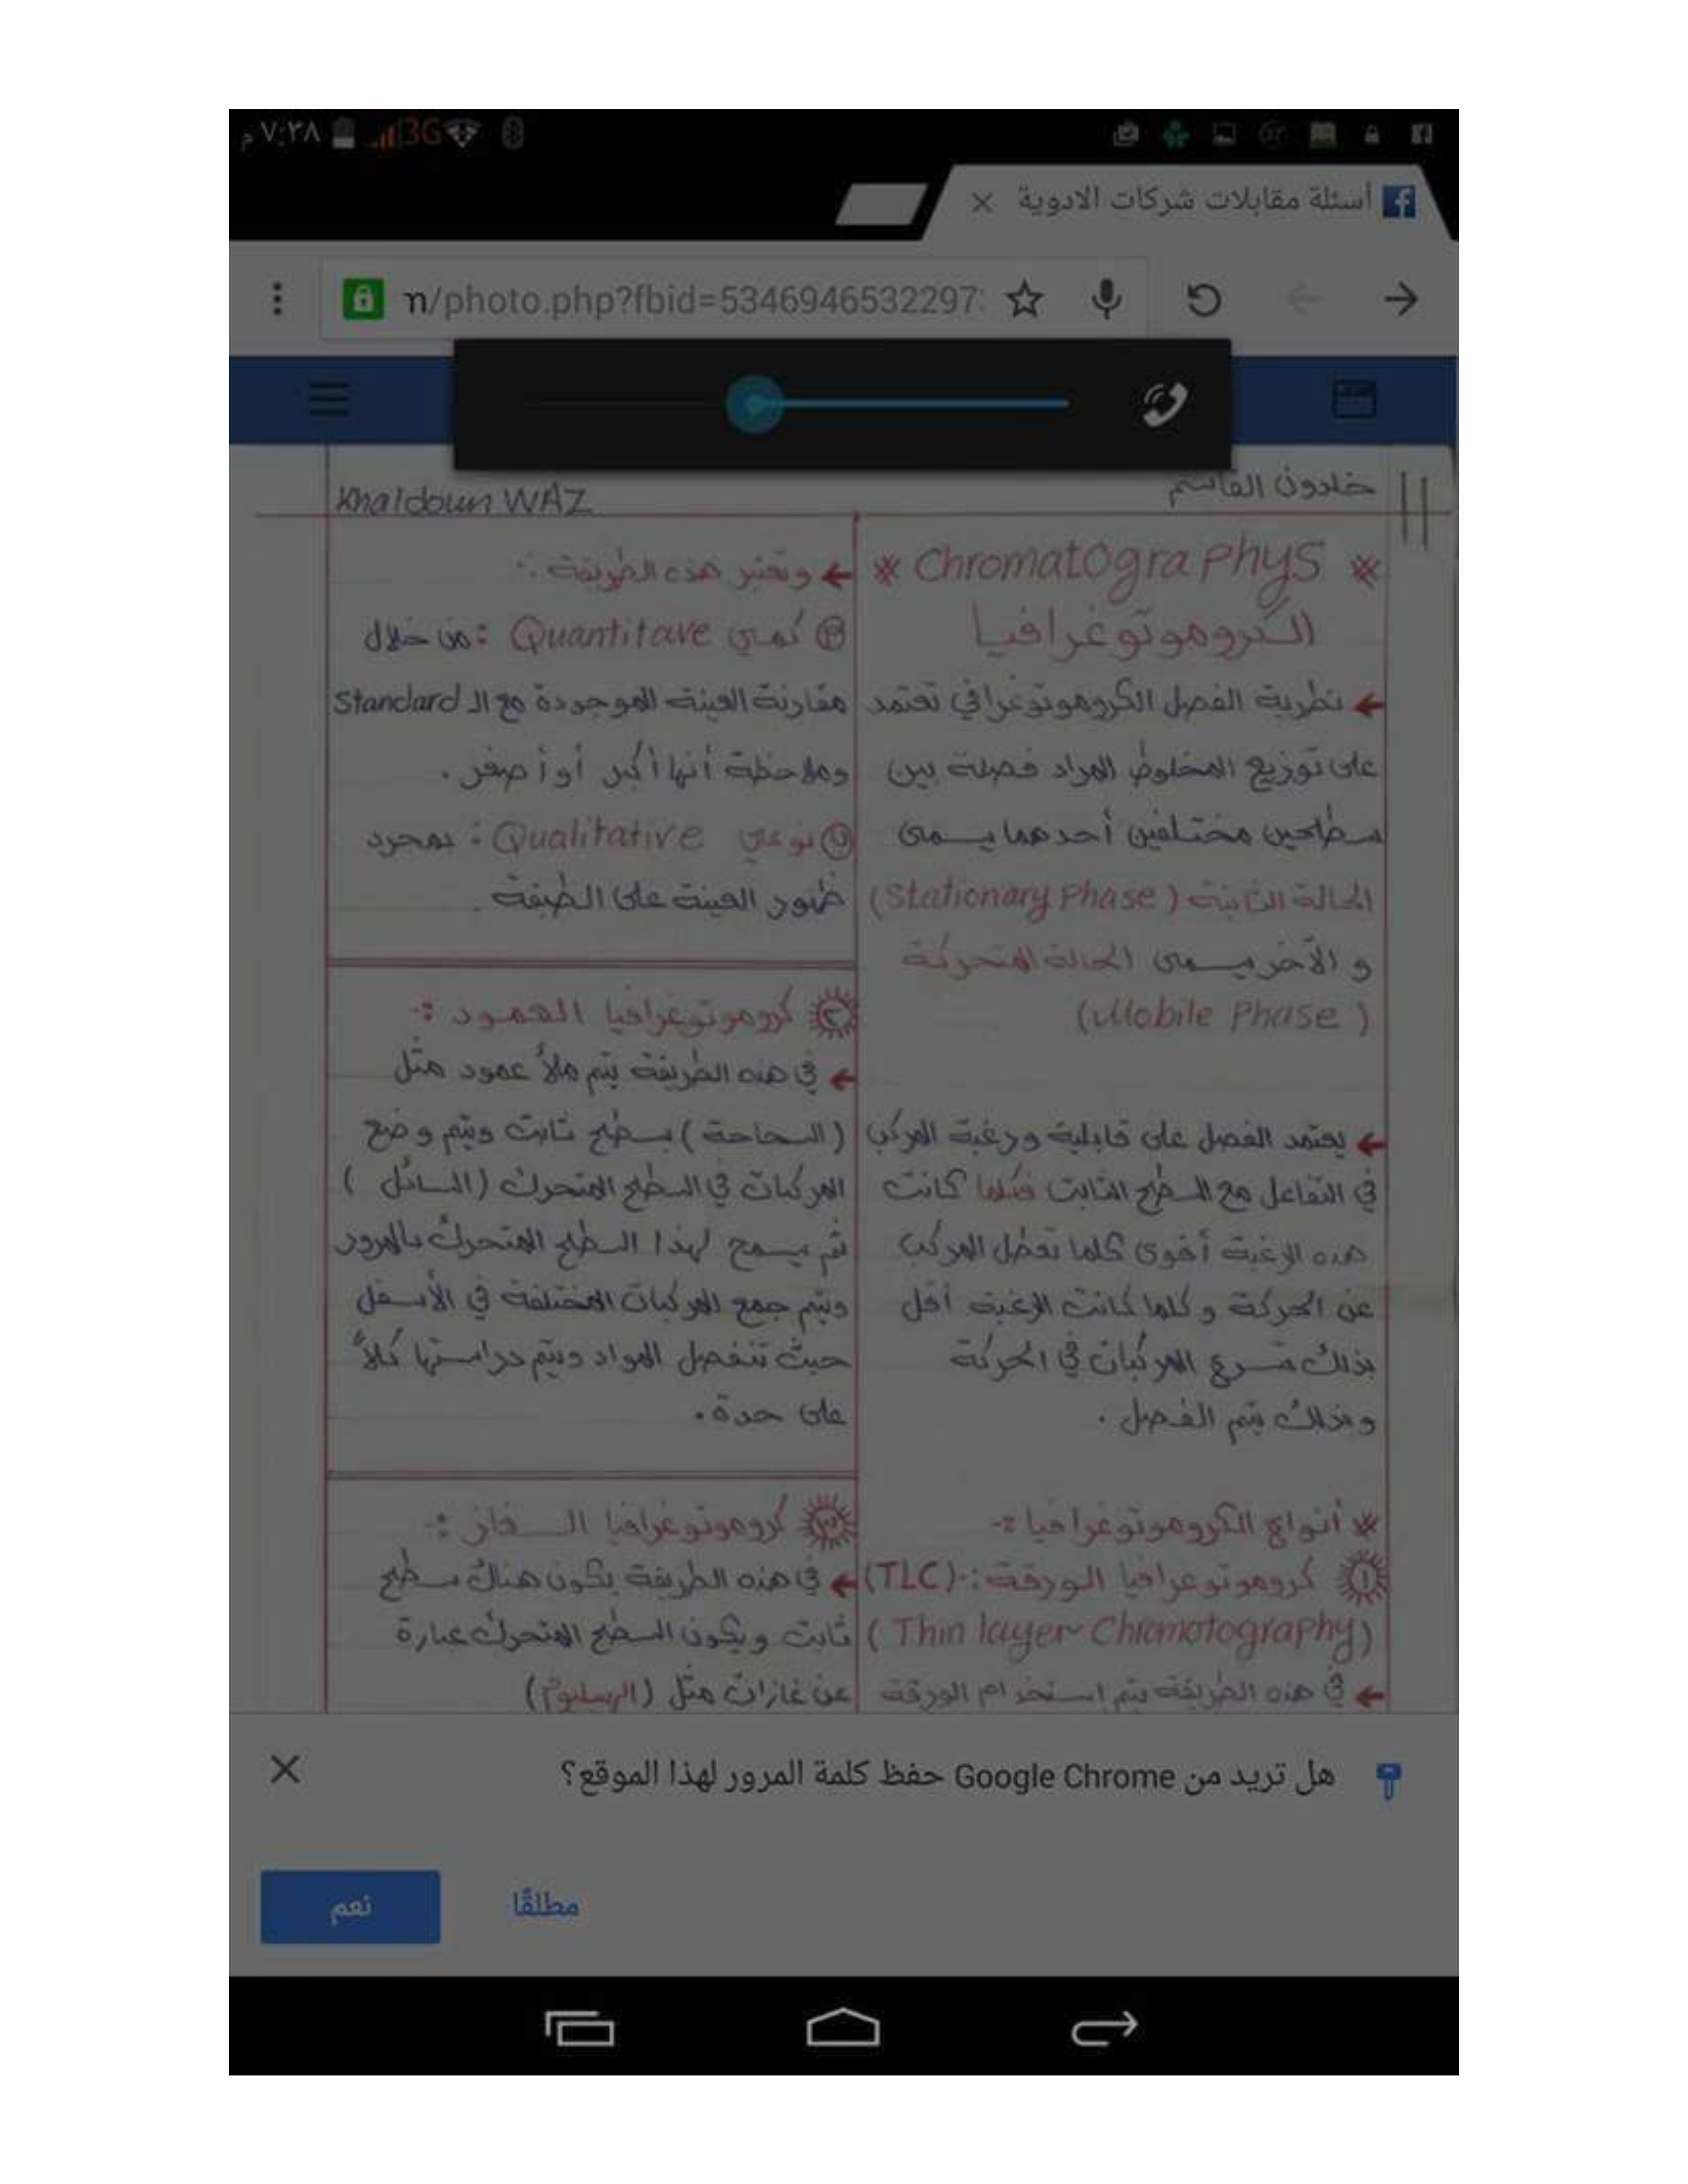 ٧:٣٨ م
3G
أسئلة مقابلات شركات الادوية
n/photo.php?fbid=5346946532297
خلدون القاسم
Khaldoun WAZ
* Chromatography's *
الكروموتوغرافيا
← نظرية الفصل الكروموتوغرافي تعتمد
على توزيع المخلوط المراد فصله بين
سطحين مختلفين أحدهما يسمى
الحالة الثابتة (Stationary Phase)
و الآخر يسمى الحالة المتحركة
(Mobile Phase)
← يعتمد الفصل على قابلية ورغبة المركب
في التفاعل مع السطح الثابت فكلما كانت
هذه الرغبة أقوى كلما تعطل المركب
عن الحركة وكلما كانت الرغبة أقل
بذلك تسرع المركبات في الحركة
وبذلك يتم الفصل.
* أنواع الكروموتوغرافيا :-
١ كروموتوغرافيا الورقة :- (TLC)
(Thin layer Chromotography)
← في هذه الطريقة يتم إستخدام الورقة
← وتعتبر هذه الطريقة :-
كمي Quantitave : من خلال
مقارنة العينة الموجودة مع الـ Standard
وملاحظة أنها أكبر أو أصغر.
نوعي Qualitative : بمجرد
ظهور العينة على الطبقة.
٢ كروموتوغرافيا العمود :-
← في هذه الطريقة يتم ملأ عمود مثل
(السحاحة) بسطح ثابت ويتم وضع
المركبات في السطح المتحرك (السائل)
ثم يسمح لهذا السطح المتحرك بالمرور
ويتم جمع المركبات المختلفة في الأسفل
حيث تنفصل المواد ويتم دراستها كلاً
على حدة.
٣ كروموتوغرافيا الـغاز :-
← في هذه الطريقة يكون هناك سطح
ثابت ويكون السطح المتحرك عبارة
عن غازات مثل (الهيليوم)
هل تريد من Google Chrome حفظ كلمة المرور لهذا الموقع؟
مطلقًا
نعم